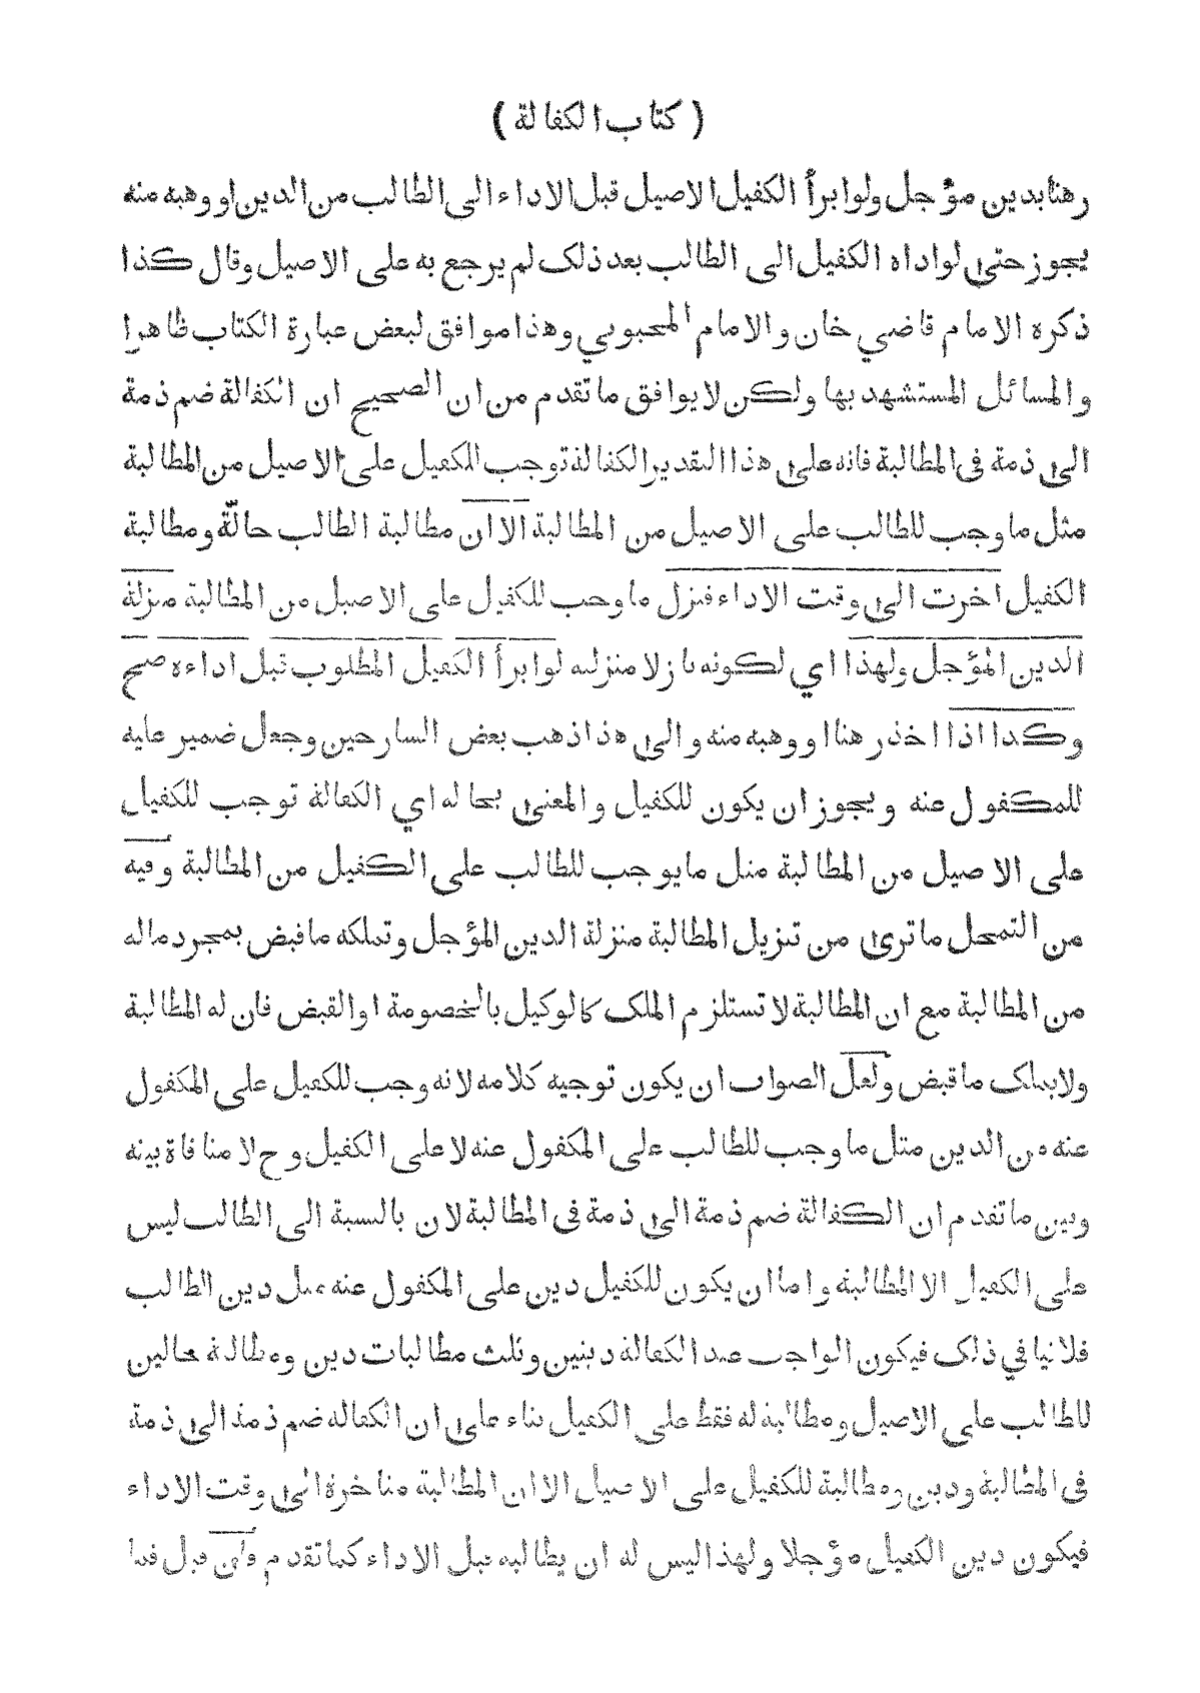 ( كتاب الكفالة )
رهنا بدين مؤجل ولو ابرأ الكفيل الاصيل قبل الاداء الى الطالب من الدين او وهبه منه
يجوز حتى لو اداه الكفيل الى الطالب بعد ذلك لم يرجع به على الاصيل وقال كذا
ذكره الامام قاضي خان والامام المحبوبي وهذا موافق لبعض عبارة الكتاب ظاهرا
والمسائل المستشهد بها ولكن لا يوافق ما تقدم من ان الصحيح ان الكفالة ضم ذمة
الى ذمة فى المطالبة فانه على هذا التقدير الكفالة توجب للكفيل على الاصيل من المطالبة
مثل ما وجب للطالب على الاصيل من المطالبة الا ان مطالبة الطالب حالّة ومطالبة
الكفيل اخرت الى وقت الاداء فنزل ما وجب للكفيل على الاصيل من المطالبة منزلة
الدين المؤجل ولهذا اي لكونه نازلا منزلته لو ابرأ الكفيل المطلوب قبل اداءه صح
وكذا اذا اخذ رهنا او وهبه منه والى هذا ذهب بعض الشارحين وجعل ضمير عليه
للمكفول عنه ويجوز ان يكون للكفيل والمعنى بحاله اي الكفالة توجب للكفيل
على الاصيل من المطالبة مثل ما يوجب للطالب على الكفيل من المطالبة وفيه
من التمحل ما ترى من تنزيل المطالبة منزلة الدين المؤجل وتملكه ما قبض بمجرد ماله
من المطالبة مع ان المطالبة لا تستلزم الملك كالوكيل بالخصومة او القبض فان له المطالبة
ولا يملك ما قبض ولعل الصواب ان يكون توجيه كلامه لانه وجب للكفيل على المكفول
عنه من الدين مثل ما وجب للطالب على المكفول عنه لا على الكفيل وح لا منافاة بينه
وبين ما تقدم ان الكفالة ضم ذمة الى ذمة فى المطالبة لان بالنسبة الى الطالب ليس
على الكفيل الا المطالبة واما ان يكون للكفيل دين على المكفول عنه مثل دين الطالب
فلا ينافي ذلك فيكون الواجب عند الكفالة دينين وثلث مطالبات دين ومطالبة حالين
للطالب على الاصيل ومطالبة له فقط على الكفيل بناء على ان الكفاله ضم ذمة الى ذمة
فى المطالبة ودين ومطالبة للكفيل على الاصيل الا ان المطالبة متاخرة الى وقت الاداء
فيكون دين الكفيل مؤجلا ولهذا ليس له ان يطالبه قبل الاداء كما تقدم فان قيل فما